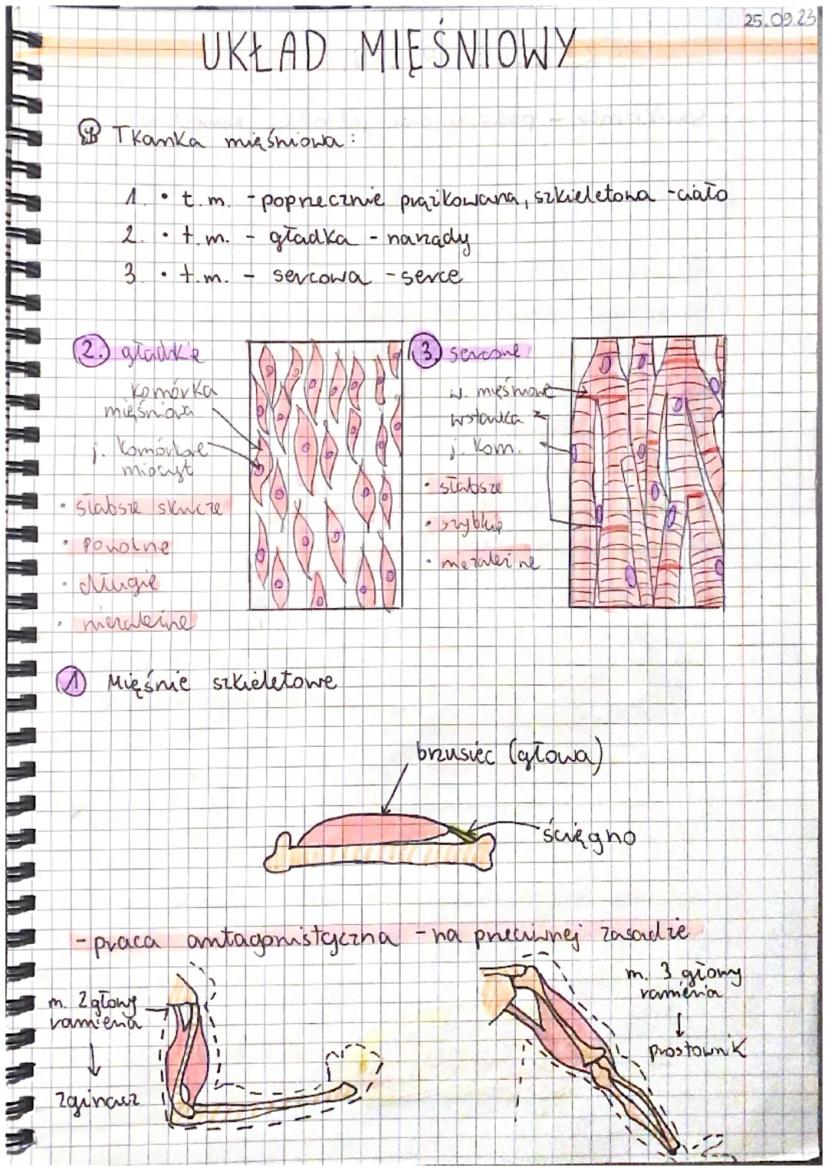 25.09.23
UKŁAD MIĘŚNIOWY
Tkanka mięśniowa:
1. • t.m. - poprzecznie prążkowana, szkieletowa - ciało
2. • t.m. - gładka - narządy
3. • t.m. - sercowa - serce
2. gładkie
komórka
mięśniowa
j. komórkowe
miocyt
• słabsze skurcze
• powolne
• długie
• niezależne
3. sercowe
w. mięśniowe
wstawka
j. kom.
• słabsze
• szybkie
• niezależne
1 Mięśnie szkieletowe
brzusiec (głowa)
ścięgno
- praca antagonistyczna - na przeciwnej zasadzie
m. 2 głowy
ramienia
zginacz
m. 3 głowy
ramienia
prostownik